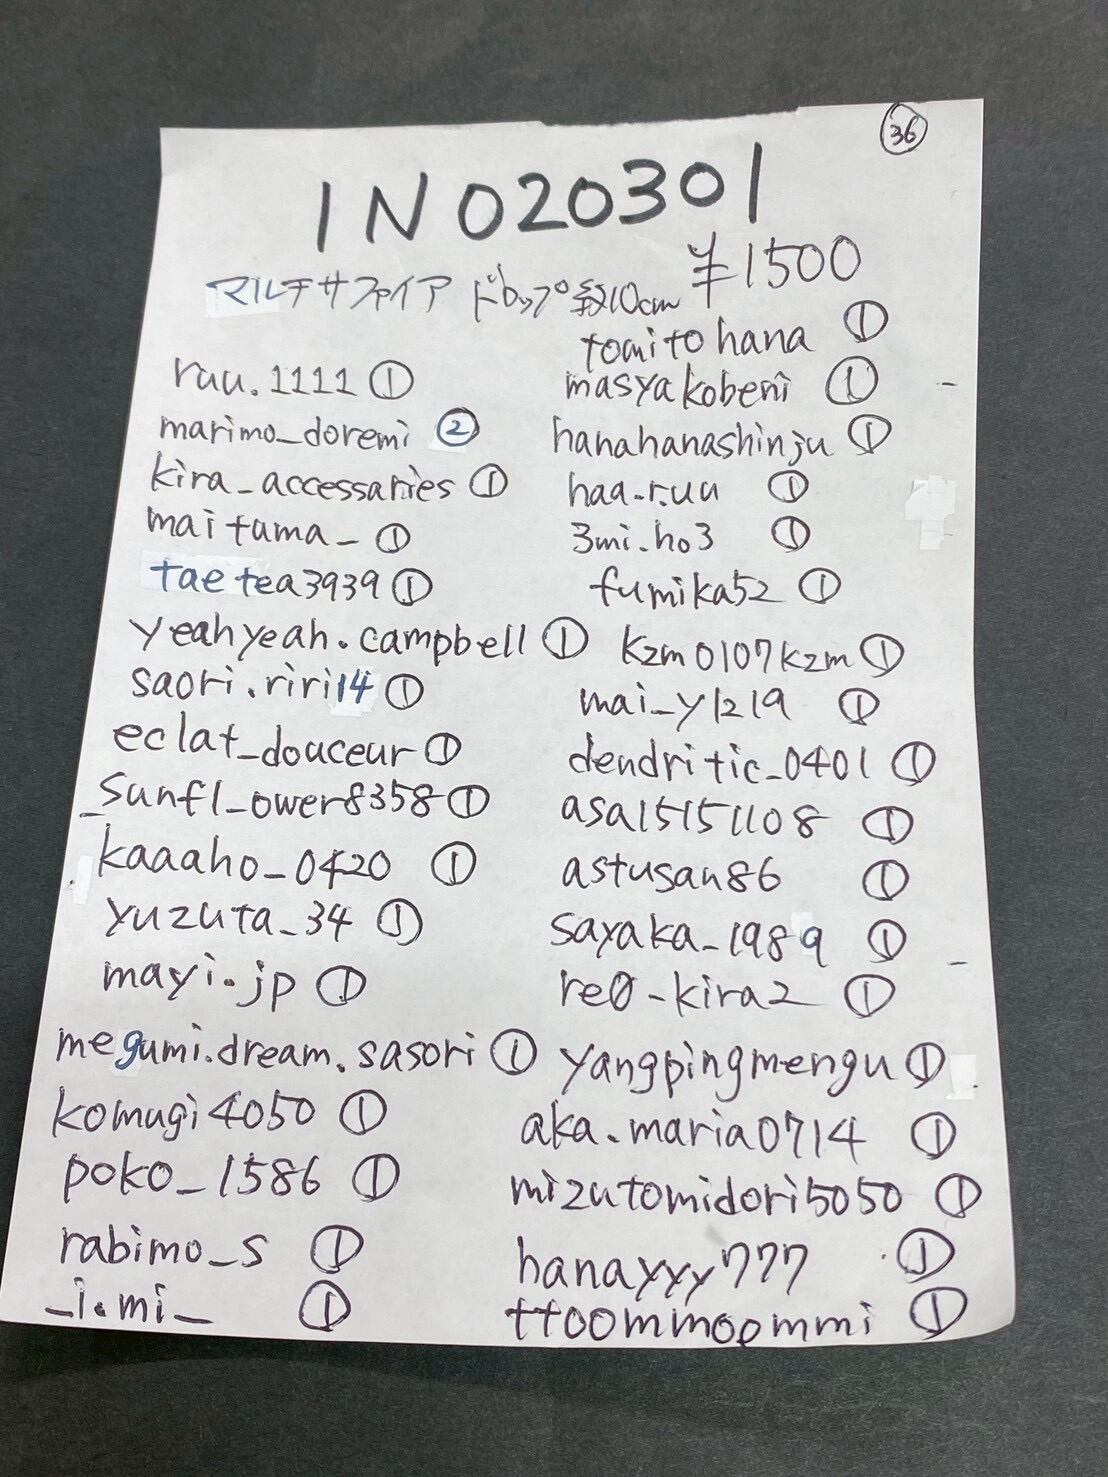 ㊱
IN020301
¥1500
マルチサファイア ドロップ 約10cm
ruu.1111 ①
marimo_doremi ②
kira_accessaries ①
maitama_ ①
taetea3939 ①
yeahyeah.campbell ①
saori.riri14 ①
eclat_douceur ①
_sunfl_ower8358 ①
kaaaho_0420 ①
yuzuta_34 ①
mayi.jp ①
megumi.dream.sasori ①
komugi4050 ①
poko_1586 ①
rabimo_s ①
_i.mi_ ①
tomitohana ①
masyakobeni ①
hanahanashinju ①
haa.ruu ①
3mi.ho3 ①
fumika52 ①
kzm0107kzm ①
mai_y1219 ①
dendritic_0401 ①
asa15151108 ①
astusan86 ①
sayaka_1989 ①
re0_kira2 ①
yangpingmengu ①
aka.maria0714 ①
mizutomidori5050 ①
hanayyy777 ①
ttoommoommi ①